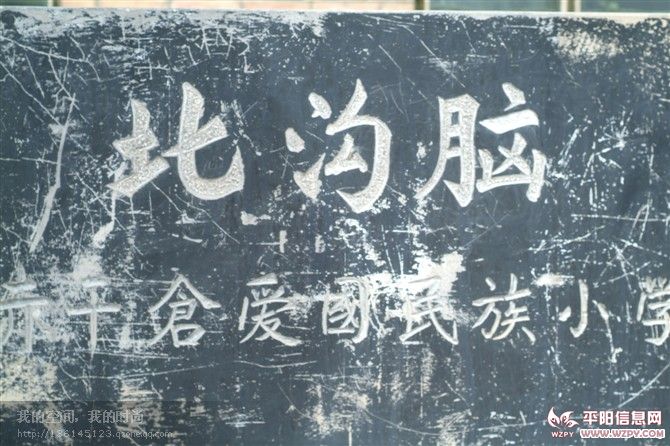 北沟脑
赤干倉爱國民族小学
我的空间，我的时尚
http://136145123.qzone.qq.com
平阳信息网
WWW.WZPY.COM
WZPY